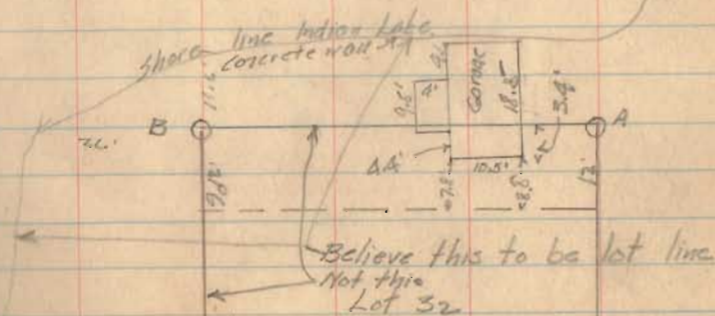 Shore line Indian Lake
Concrete wall
11.6'
9.5'
4'
Garage
18.5'
3.4'
B
A
4.4'
10.5'
7.8'
8.8'
12'
Believe this to be lot line
Not this
Lot 32